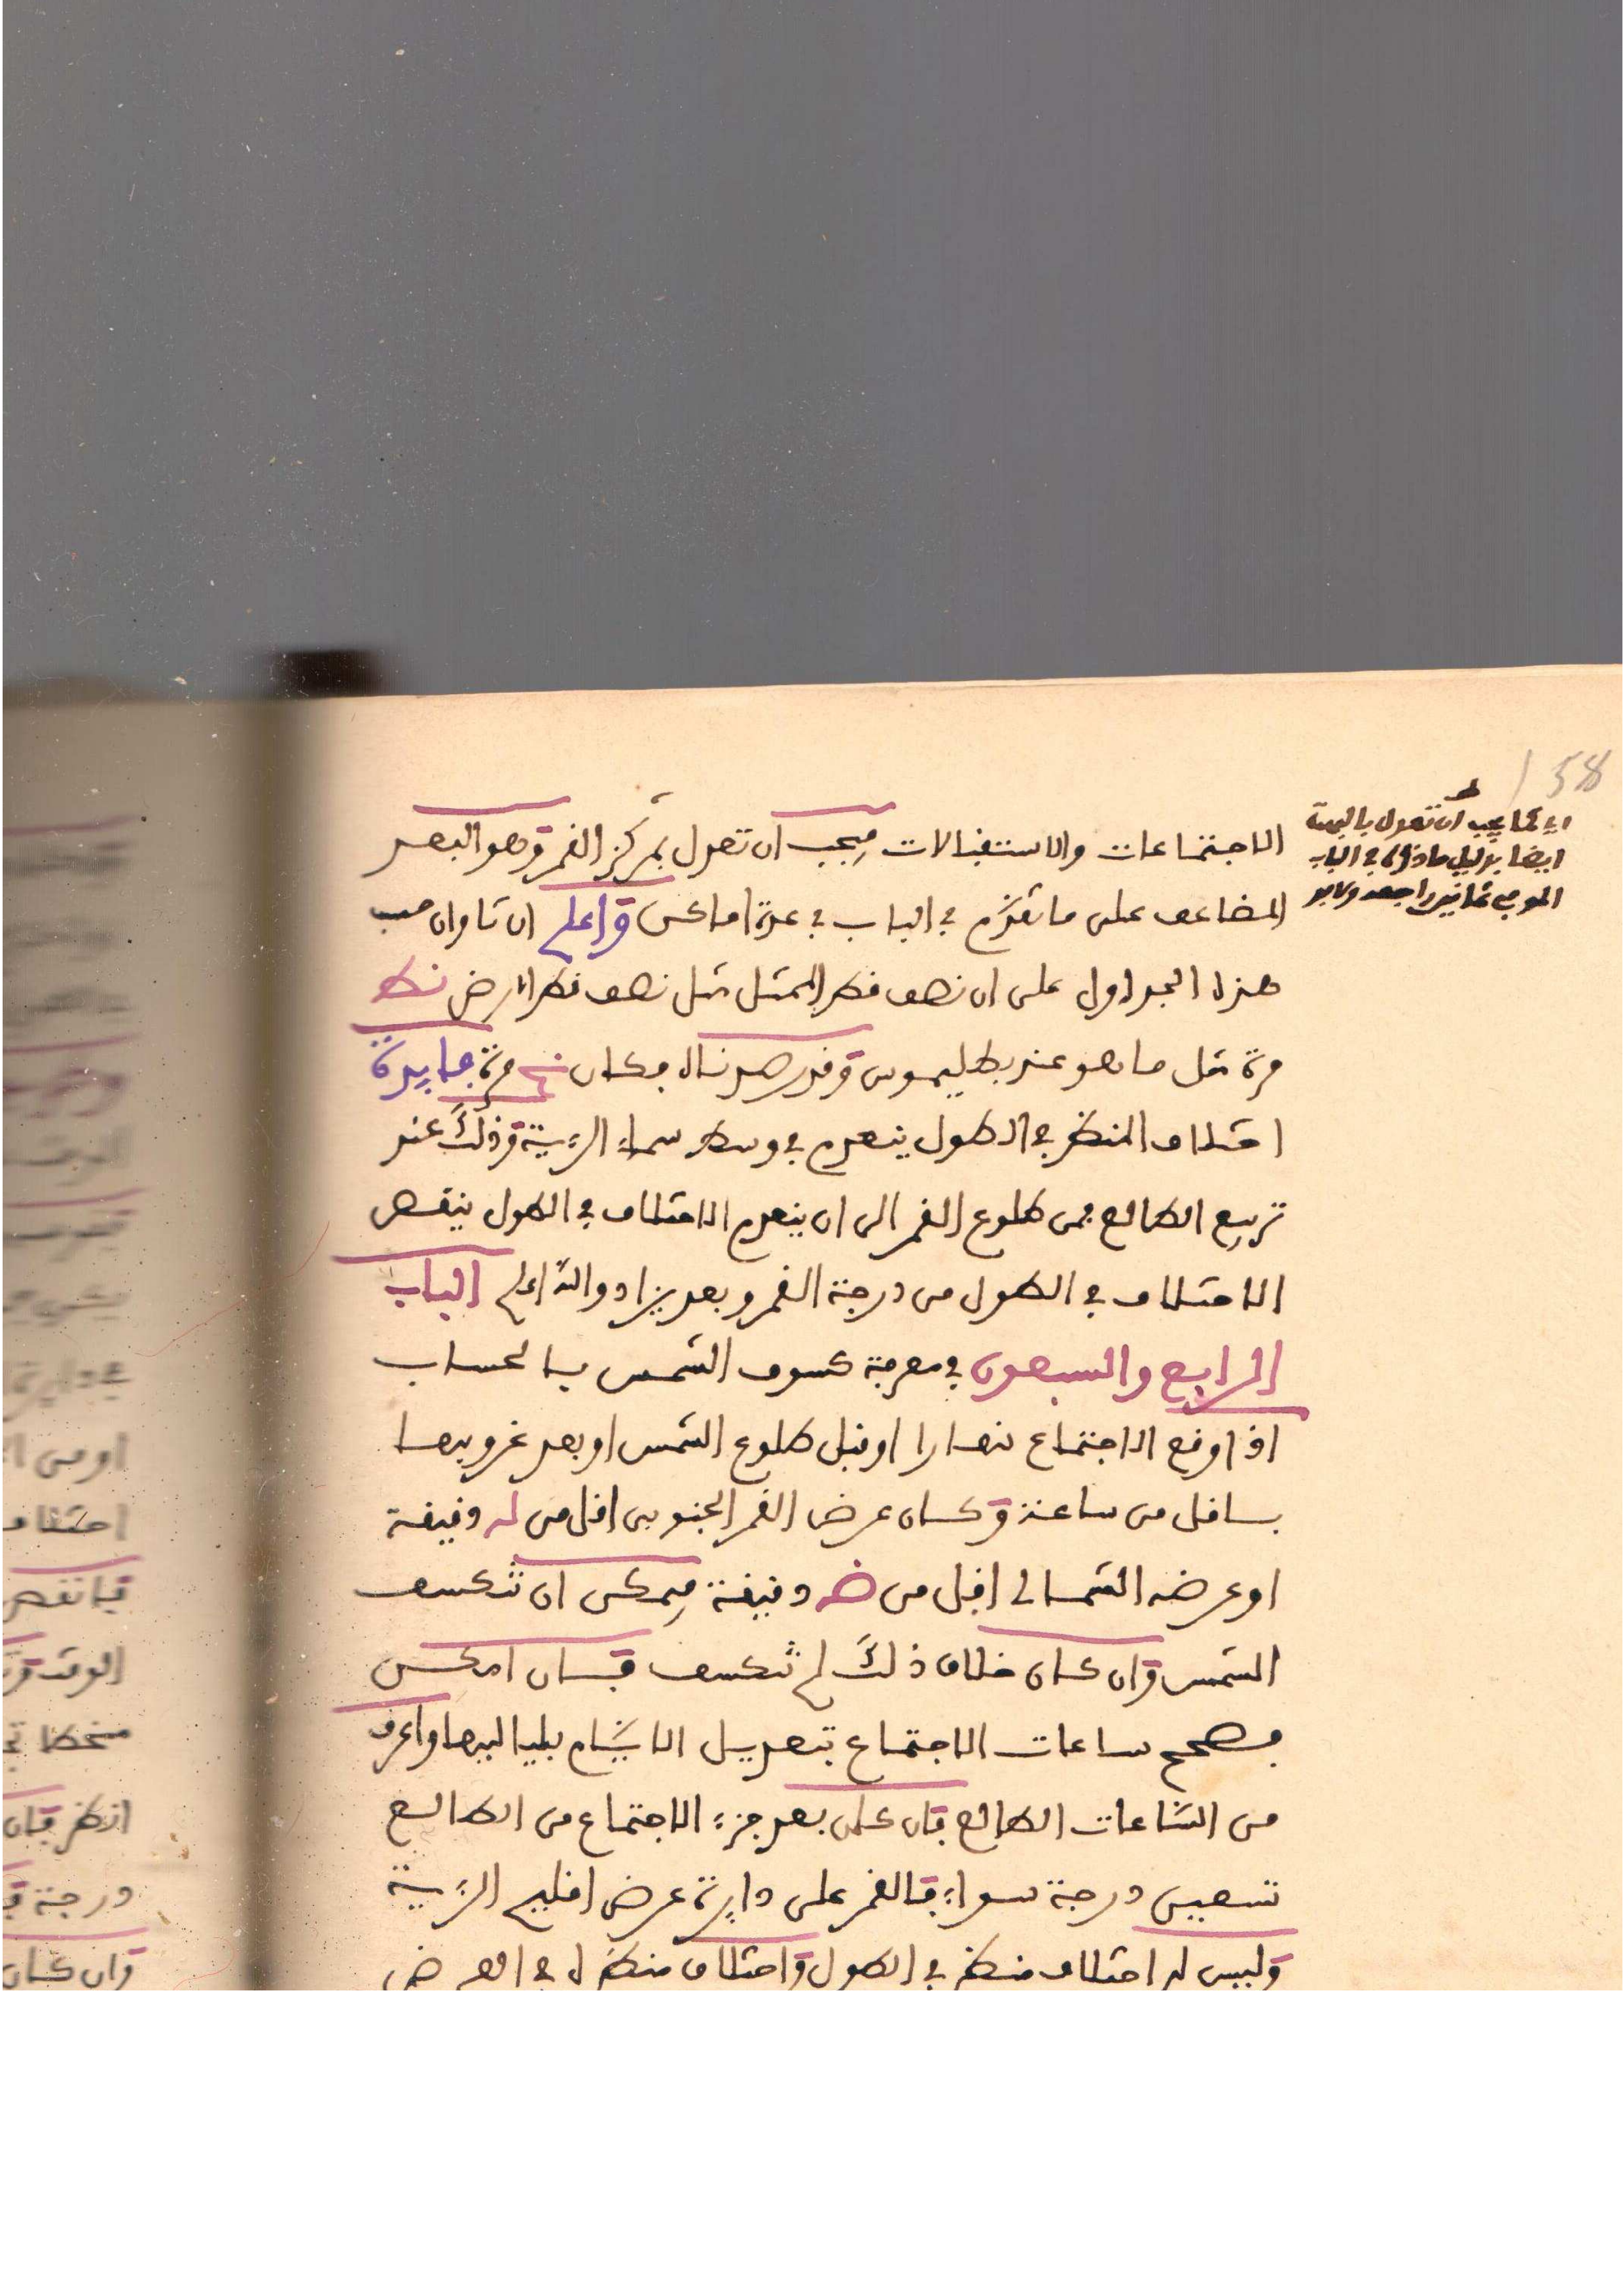 158
اي كما يجب ان تعدل بالبهت
ايضا بدليل ما ذكره في الباب
الموفي ثمانين راجعه ولابد
الاجتماعات والاستقبالات فيجب ان تعدل بمركز القمر وهو البعد
المضاعف على ما تقدم في الباب في عدة اماكن واعلم ان تاوان حسب
هذا الجداول على ان نصف قطر الممثل مثل نصف قطر الارض نط
مرة مثل ما هو عند بطليموس وقد رصدناه فكان نح مرة فايدة
اختلاف المنظر في الطول ينعدم في وسط سماء الرءية وذلك عند
تربيع الطالع فمن طلوع القمر الى ان ينعدم الاختلاف في الطول ينقص
الاختلاف في الطول من درجة القمر وبعد يزاد والله اعلم الباب
الرابع والسبعون في معرفة كسوف الشمس بالحساب
اذا وقع الاجتماع نهارا او قبل طلوع الشمس او بعد غروبها
باقل من ساعة وكان عرض القمر الجنوبي اقل من له دقيقة
او عرضه الشمالي اقل من ضه دقيقة فيمكن ان تنكسف
الشمس وان كان خلاف ذلك لم تنكسف فان امكن
فصحح ساعات الاجتماع بتعديل الايام بلياليها واعرف
من الساعات الطالع فان كان بعد جزء الاجتماع من الطالع
تسعين درجة سواء فالقمر على دايرة عرض اقليم الرءية
وليس له اختلاف منظر في الطول واختلاف منظره في العرض